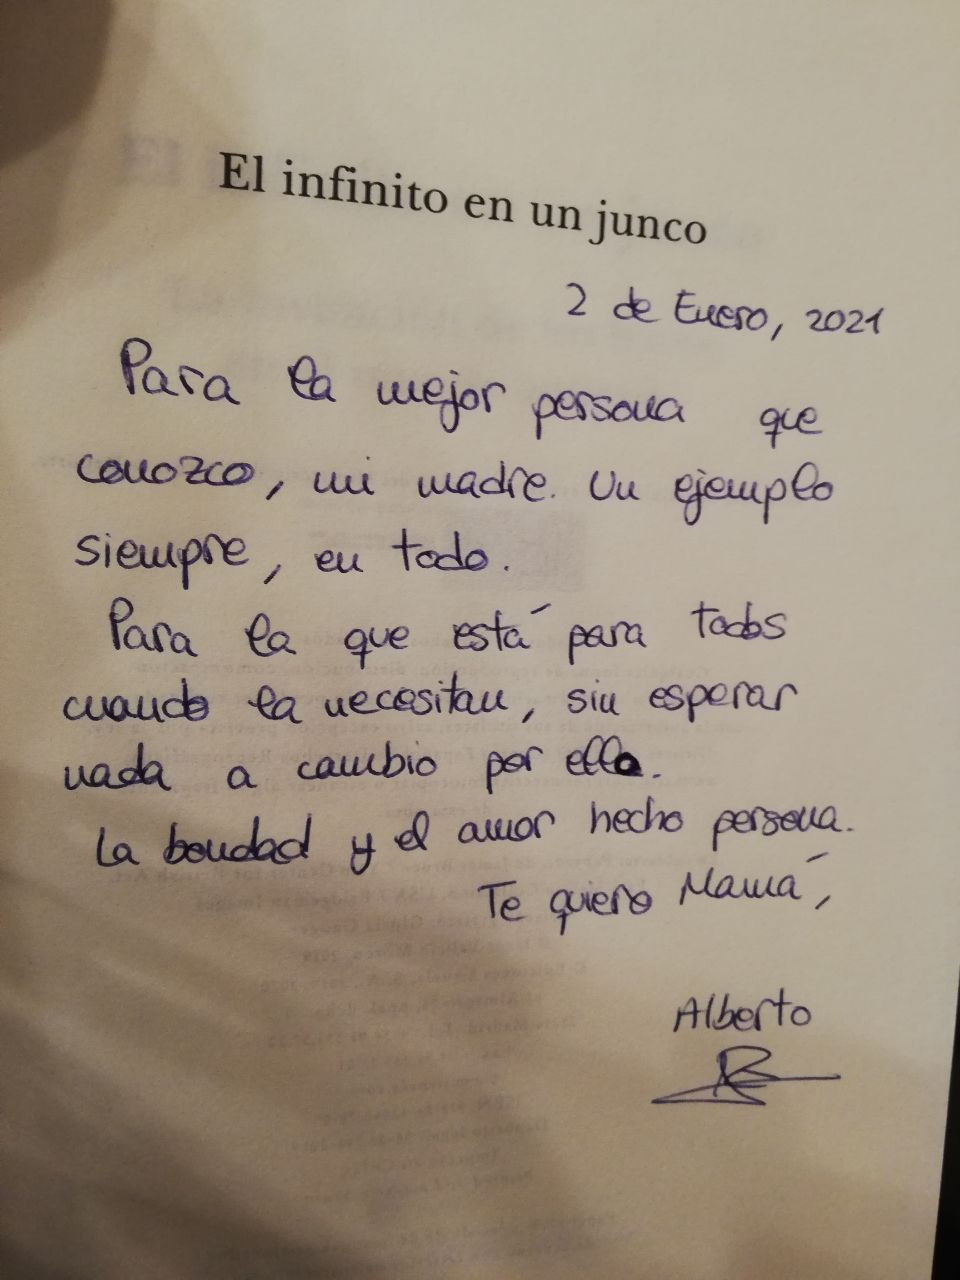 El infinito en un junco
2 de Enero, 2021
Para la mejor persona que
conozco, mi madre. Un ejemplo
siempre, en todo.
Para la que está para todos
cuando la necesitan, sin esperar
nada a cambio por ello.
La bondad y el amor hecho persona.
Te quiero Mamá,
Alberto